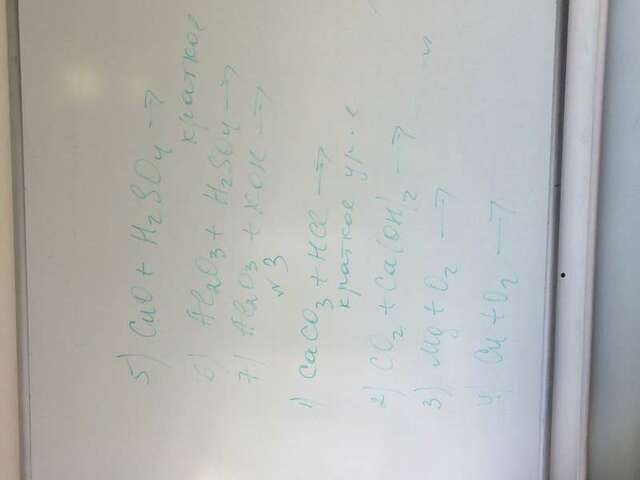 5) CuO + H₂SO₄ →
краткое
6) Al₂O₃ + H₂SO₄ →
7) Al₂O₃ + KOH →
№3
1) CaCO₃ + HCl →
краткое ур-е
2) CO₂ + Ca(OH)₂ →
3) Mg + O₂ →
4) Cu + O₂ →